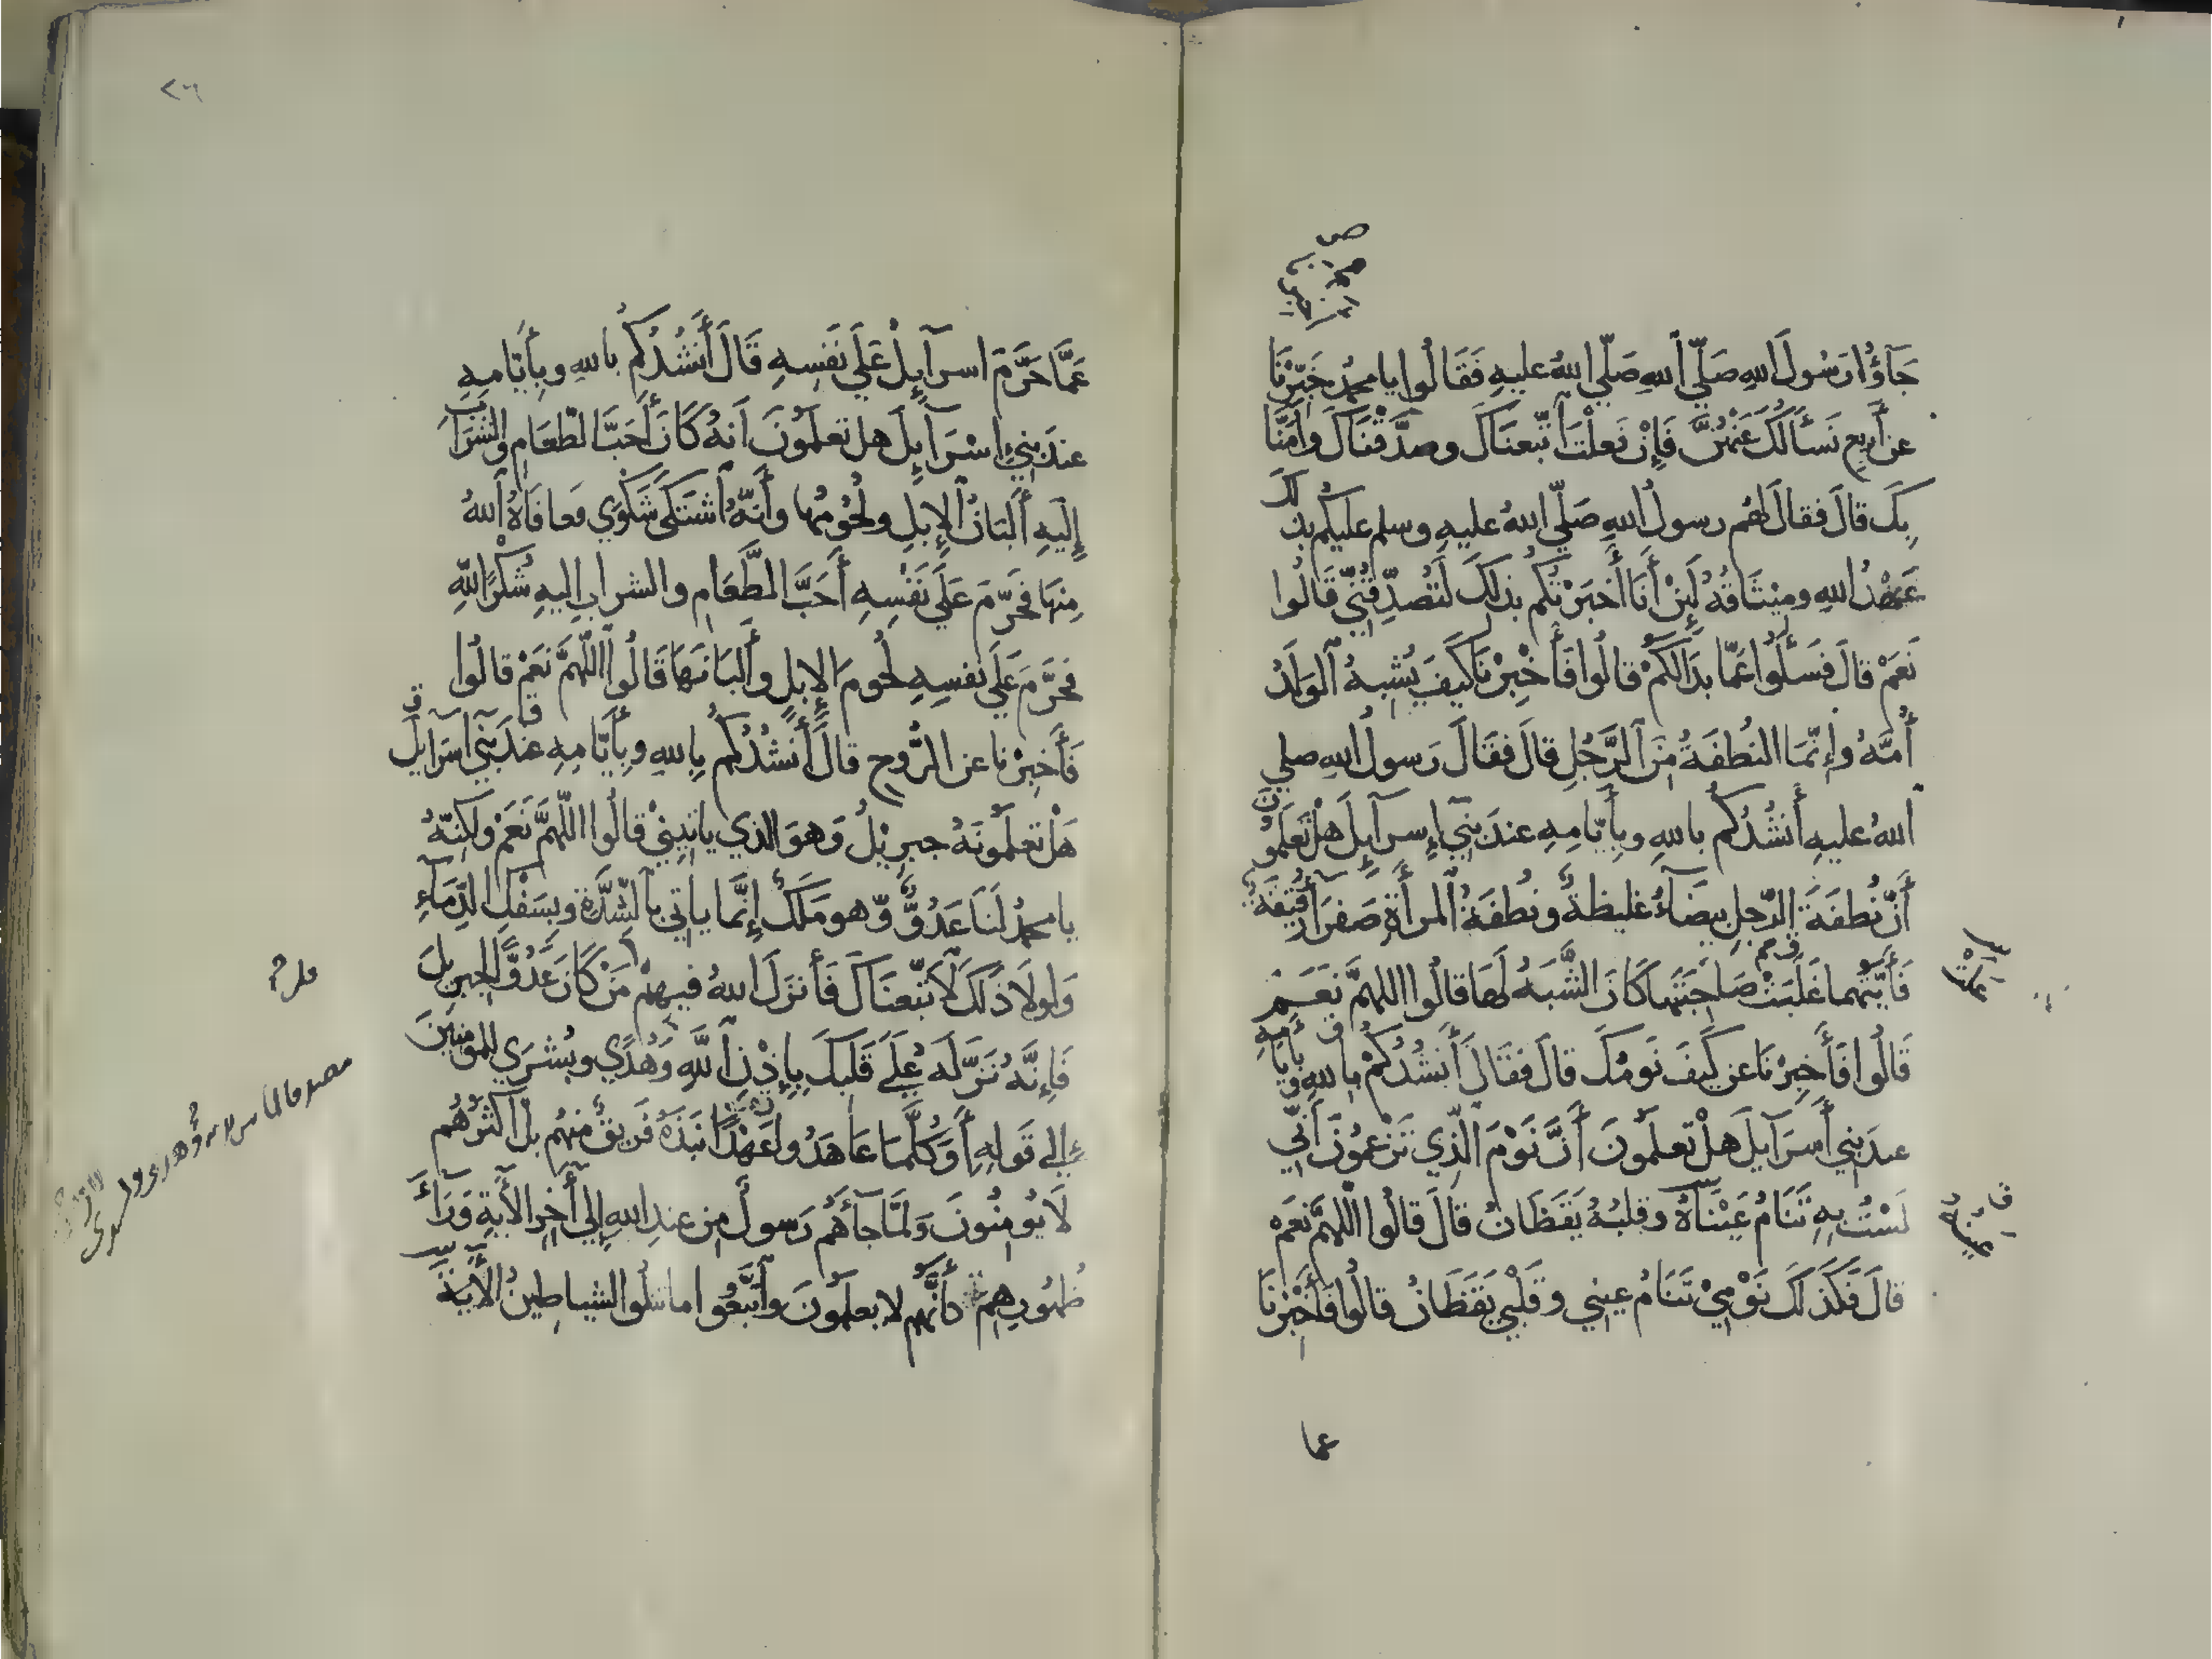 جَآؤُا رَسُولَ اللهِ صَلّي اللهِ صَلّي اللهُ عليهِ فَقَالُوا يا محمدُ خَبِّرْنَا
عن أربعٍ نَسْأَلُكَ عَنْهُنَّ فَإِنْ فَعَلْتَ اتَّبعنَاكَ وصدَّقْنَاكَ وآمنَّا
بِكَ قالَ فقالَ لهُم رسولُ اللهِ صَلّي اللهُ عليهِ وسلم عليكُم بذلكَ
عَهْدُ اللهِ ومِيْثَاقُهُ لَئِنْ أَنَا أَخبَرْتُكُم بذلكَ لَتُصَدِّقُنِّي قَالُوا
نَعَمْ قالَ فَسَلُوا عَمّا بدَالَكُمْ قالُوا فَأَخْبِرْنَا كَيفَ يُشبِهُ الوَلَدُ
أُمَّهُ وإنّمَا النُطفَةُ مِنَ الرَّجُلِ قالَ فقَالَ رَسولُ اللهِ صلي
اللهُ عليهِ أَنشُدُكُم باللهِ وبِأَيّامِهِ عندَ بَنِي إِسرآيِلَ هَلْ تَعلَمُونَ
أَنَّ نُطفَةَ الرّجلِ بيضَآءُ غليظةٌ ونُطفَةُ المرأَةِ صَفرَآ رَقِيقَةٌ
فَأَيّتُهما غَلَبَتْ صَاحِبَتَهَا كَانَ الشَّبَهُ لَهَا قالُوا اللهمَّ نَعَمْ
قَالُوا فَأَخبِرْنَا عن كَيفَ نَومُكَ قالَ فقَالَ أَنشُدُكُمْ باللهِ وبأيامِهِ
عندَ بني أَسرَآيلَ هلْ تعلَمُونَ أَنَّ نَوْمَ الّذِي تَزْعمُونَ أَنِّي
لَسْتُ بِهِ تَنَامُ عَيْنَاهُ وقلبُهُ يَقَظَانٌ قالَ قالُوا اللّهمَّ نَعَمْ
قالَ فَكَذَلكَ نَوْمِيْ تَنَامُ عيني وقَلْبِي يَقَظَانُ قالُوا فَأَخْبِرْنَا
عما
عَمَّا حَرَّمَ اسرآيِلُ عَلَي نَفسِهِ قَالَ أَنشُدُكُم باللهِ وبِأَيّامِهِ
عندَ بنِي إسْرَآيِلَ هل تعلَمُونَ انهُ كَانَ أَحَبَّ الطّعَامِ والشَرَابِ
إِلَيهِ أَلبَانُ الإِبِلِ ولُحُومُها وأَنّهُ اشتَكَي شَكْوَي فعافَاهُ اللهُ
مِنهَا فحَرّمَ عَلَي نَفْسِهِ أَحَبَّ الطَّعَامِ والشرابِ اليهِ شُكْرًا للّهِ
فحَرَّمَ عَلَي نفسِهِ لُحُومَ الإِبلِ وأَلبَانَهَا قَالُوا اللّهمَّ نعَمْ قالُوا
فَأَخبِرْنا عن الرُّوحِ قالَ أَنشُدُكُم بِاللهِ وبِأَيّامِهِ عندَ بَني آسرَآيلَ
هَلْ تعلَمُونَهُ جبرِيلُ وَهوَ الذي ياتِينِيْ قالُوا اللّهمَّ نَعَمْ ولكِنّهُ
يا محمدُ لَنَا عَدُوٌّ وّهو مَلَكٌ إنَّما ياتي بالشِّدَّةِ وبِسَفْكِ الدِّمَآءِ
وَلولَا ذَلكَ لَاتّبعنَاكَ فَأَنزلَ اللهُ فيهِمْ مَنْ كَانَ عَدُوًّا لجبرِيلَ
فَإِنَّهُ نَزَّلَهُ عَلَي قَلبكَ بِإِذْنِ اللهِ وَهُدًي وبُشرَي للمؤمنِينَ
إِلي قَولِهِ أَوَكُلَّمَا عَاهَدُوا عَهْدًا نبَذَهُ فَريقٌ منهُم بل أكثَرُهُم
لَا يُومِنُونَ وَلمَّا جآءَهُم رَسولٌ مِن عندِ اللهِ إلي أَخِرِ الآيَةِ وَرَآءَ
ظهُورِهِم كأَنَّهُم لا يعلمُونَ واتَّبعُوا ما تتلُوا الشياطِينُ الآيةَ